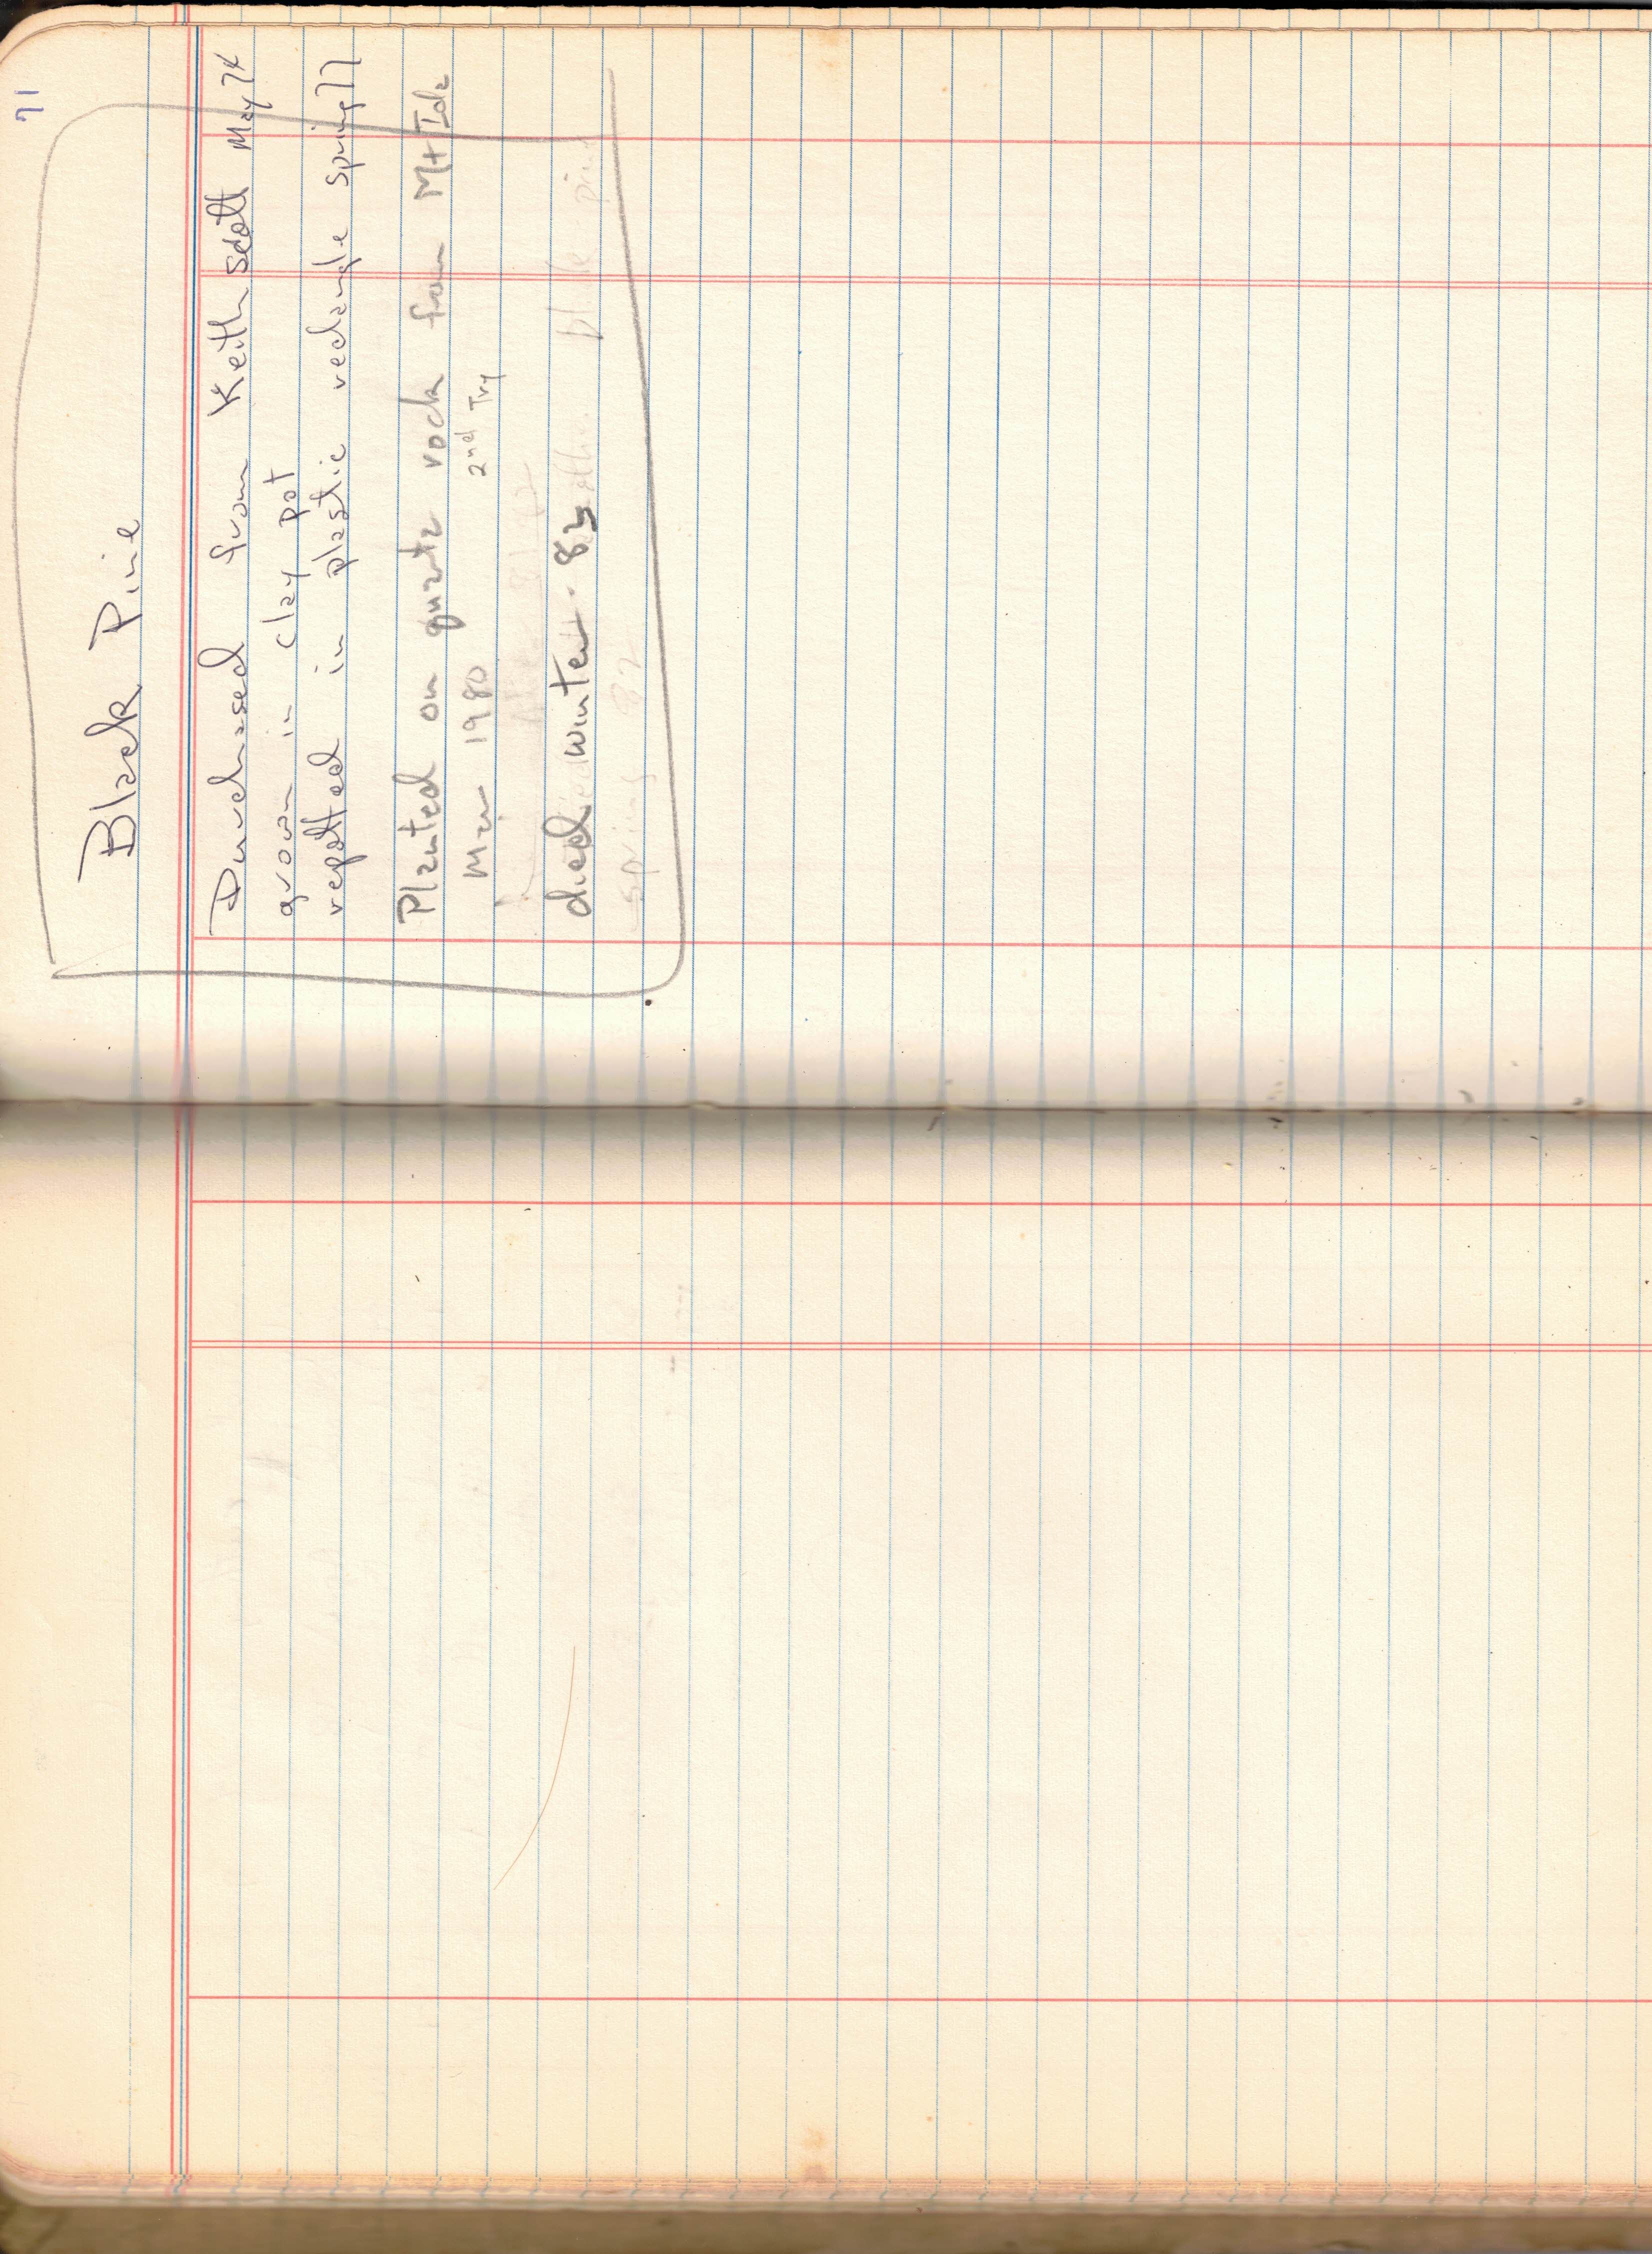 71
Black Pine
Purchased from Keith Scott May 74
grown in clay pot
repotted in plastic rectangle spring 77
Planted on quartz rock from Mt Ida
Mar 1980 2nd Try
died winter 83
pine
spring 82